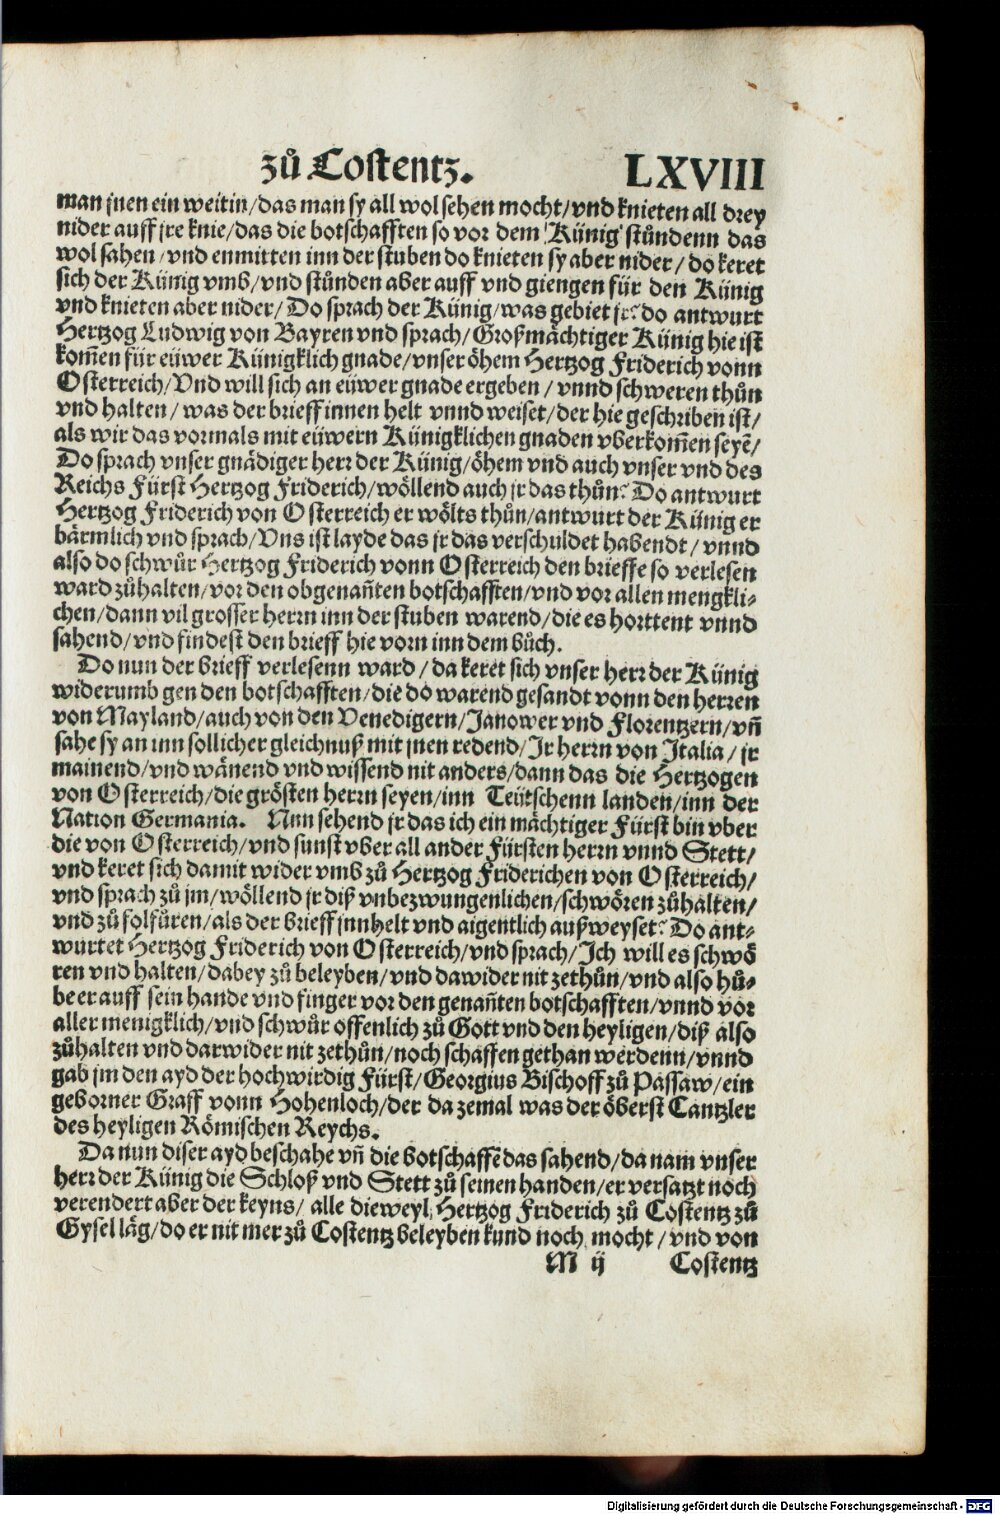 zů Costentz.
LXVIII
man jnen ein weitin/das man sy all wol sehen mocht/vnd knieten all drey
nider auff jre knie/das die botschafften so vor dem Künig stůndenn das
wol sahen/vnd enmitten inn der stuben do knieten sy aber nider/do keret
sich der Künig vmb/vnd stůnden aber auff vnd giengen für den Künig
vnd knieten aber nider/Do sprach der Künig/was gebiet jr? do antwurt
Hertzog Ludwig von Bayren vnd sprach/Großmächtiger Künig hie ist
kom̄en für eüwer Künigklich gnade/vnser öhem Hertzog Friderich vonn
Osterreich/Vnd will sich an eüwer gnade ergeben/vnnd schweren thůn
vnd halten/was der brieff innen helt vnnd weiset/der hie geschriben ist/
als wir das vormals mit eüwern Künigklichen gnaden vberkom̄en seyē/
Do sprach vnser gnädiger herr der Künig/öhem vnd auch vnser vnd des
Reichs Fürst Hertzog Friderich/wöllend auch jr das thůn? Do antwurt
Hertzog Friderich von Osterreich er wölts thůn/antwurt der Künig er
bärmlich vnd sprach/Vns ist layde das jr das verschuldet habendt/vnnd
also do schwůr Hertzog Friderich vonn Osterreich den brieffe so verlesen
ward zůhalten/vor den obgenan̄ten botschafften/vnd vor allen mengkli-
chen/dann vil grosser herrn inn der stuben warend/die es horttent vnnd
sahend/vnd findest den brieff hie vorn inn dem bůch.
Do nun der brieff verlesenn ward/da keret sich vnser herr der Künig
widerumb gen den botschafften/die do warend gesandt vonn den herren
von Mayland/auch von den Venedigern/Janower vnd Florentzern/vn̄
sahe sy an inn sollicher gleichnuß mit jnen redend/Jr herrn von Jtalia/jr
mainend/vnd wänend vnd wissend nit anders/dann das die Hertzogen
von Osterreich/die grösten herrn seyen/inn Teütschenn landen/inn der
Nation Germania. Nun sehend jr das ich ein mächtiger Fürst bin vber
die von Osterreich/vnd sunst vber all ander Fürsten herrn vnnd Stett/
vnd keret sich damit wider vmb zů Hertzog Friderichen von Osterreich/
vnd sprach zů jm/wöllend jr diß vnbezwungenlichen/schwören zůhalten/
vnd zů folfůren/als der brieff jnnhelt vnd aigentlich außweyset? Do ant-
wurtet Hertzog Friderich von Osterreich/vnd sprach/Jch will es schwö
ren vnd halten/dabey zů beleyben/vnd dawider nit zethůn/vnd also hů-
be er auff sein hande vnd finger vor den genan̄ten botschafften/vnnd vor
aller menigklich/vnd schwůr offenlich zů Gott vnd den heyligen/diß also
zůhalten vnd darwider nit zethůn/noch schaffen gethan werdenn/vnnd
gab jm den ayd der hochwirdig Fürst/Georgius Bischoff zů Passaw/ein
geborner Graff vonn Hohenloch/der da zemal was der öberst Cantzler
des heyligen Römischen Reychs.
Da nun diser ayd beschahe vn̄ die botschaffē das sahend/da nam vnser
herr der Künig die Schloß vnd Stett zů seinen handen/er versatzt noch
verendert aber der keyns/alle dieweyl Hertzog Friderich zů Costentz zů
Gysel läg/do er nit mer zů Costentz beleyben kund noch mocht/vnd von
M ij
Costentz
Digitalisierung gefördert durch die Deutsche Forschungsgemeinschaft - DFG